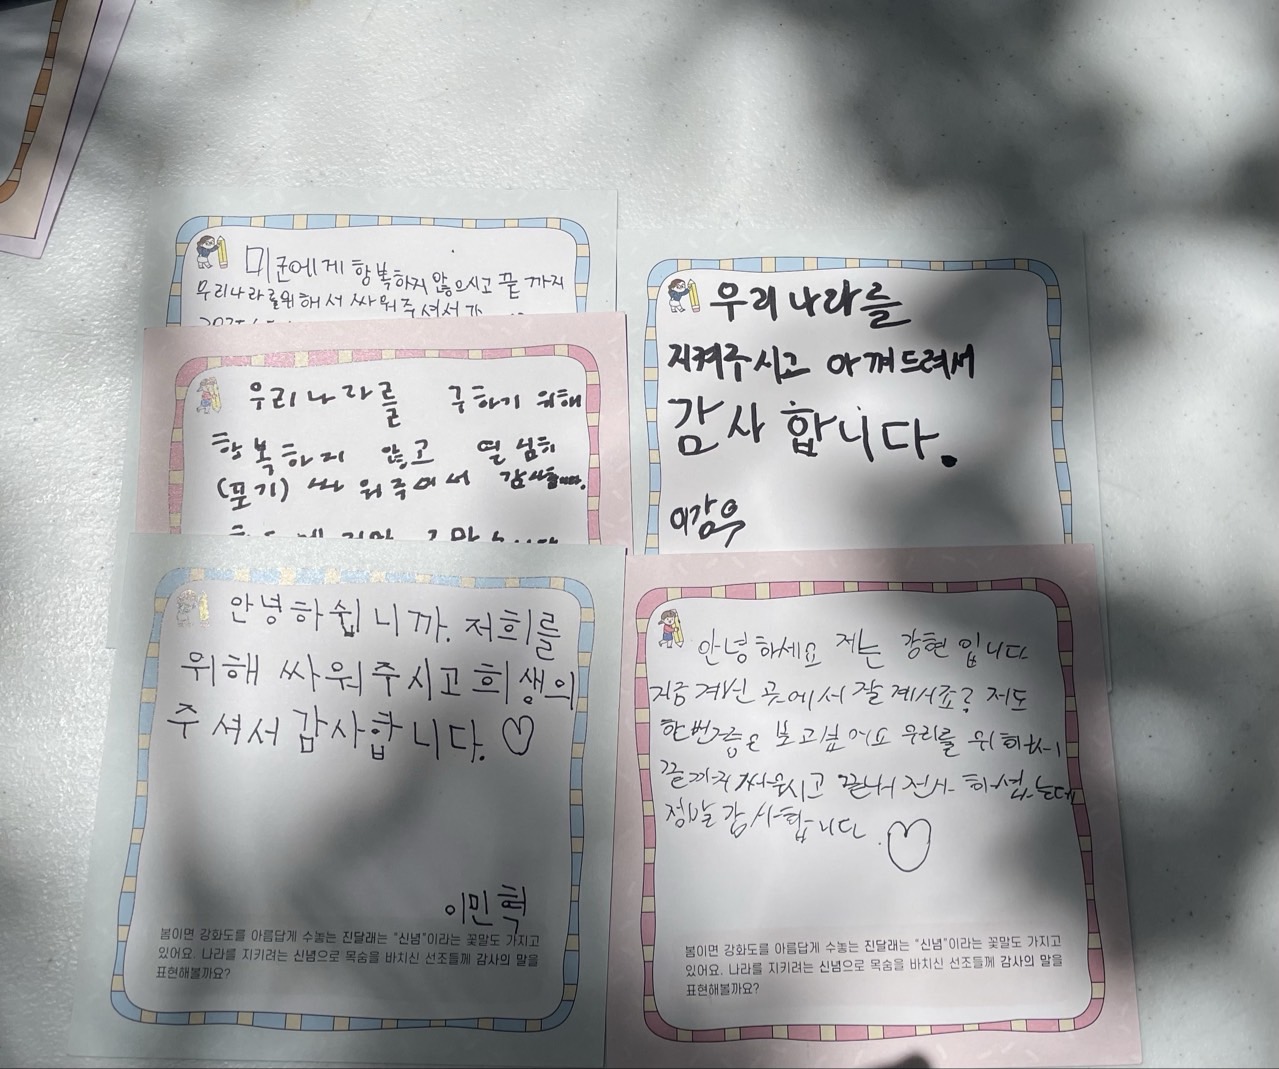 미군에게 항복하지 않으시고 끝 까지
우리나라를위해서 싸워주셔서 가
우리나라를 구하기 위해
항복하지 않고 열심히
(포기) 싸워주여서 감사합니다.
우리나라를
지켜주시고 아껴드려서
감사합니다.
이강우
안녕하쉽니까. 저희를
위해 싸워주시고희생의
주셔서 감사합니다. ♡
이민혁
봄이면 강화도를 아름답게 수놓는 진달래는 "신념"이라는 꽃말도 가지고
있어요. 나라를 지키려는 신념으로 목숨을 바치신 선조들께 감사의 말을
표현해볼까요?
안녕하세요 저는 강현입니다
지금계신 곳에서 잘계서죠? 저도
한번쯤은 보고싶어요 우리를 위해서
끝까지 싸우시고 전사 하셨는데
정말감사합니다 ♡
봄이면 강화도를 아름답게 수놓는 진달래는 "신념"이라는 꽃말도 가지고
있어요. 나라를 지키려는 신념으로 목숨을 바치신 선조들께 감사의 말을
표현해볼까요?